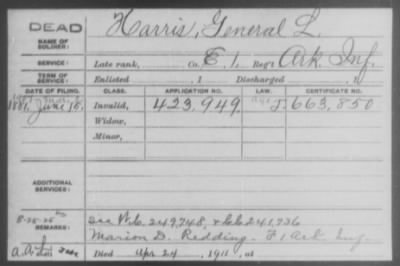 DEAD
Harris, General L.
NAME OF SOLDIER:
SERVICE: Late rank, Co. E. 1, Reg't Ark Inf.
TERM OF SERVICE: Enlisted , 1 Discharged , 1
DATE OF FILING. CLASS. APPLICATION NO. LAW. CERTIFICATE NO.
June 18. Invalid, 423,949. J. 663,850
Widow,
Minor,
ADDITIONAL SERVICES:
8-25-25
REMARKS: See W.C. 249,748, & 241,736
Marion D. Redding. F 1 Ark. Inf.
Died Apr 24, 1911, at